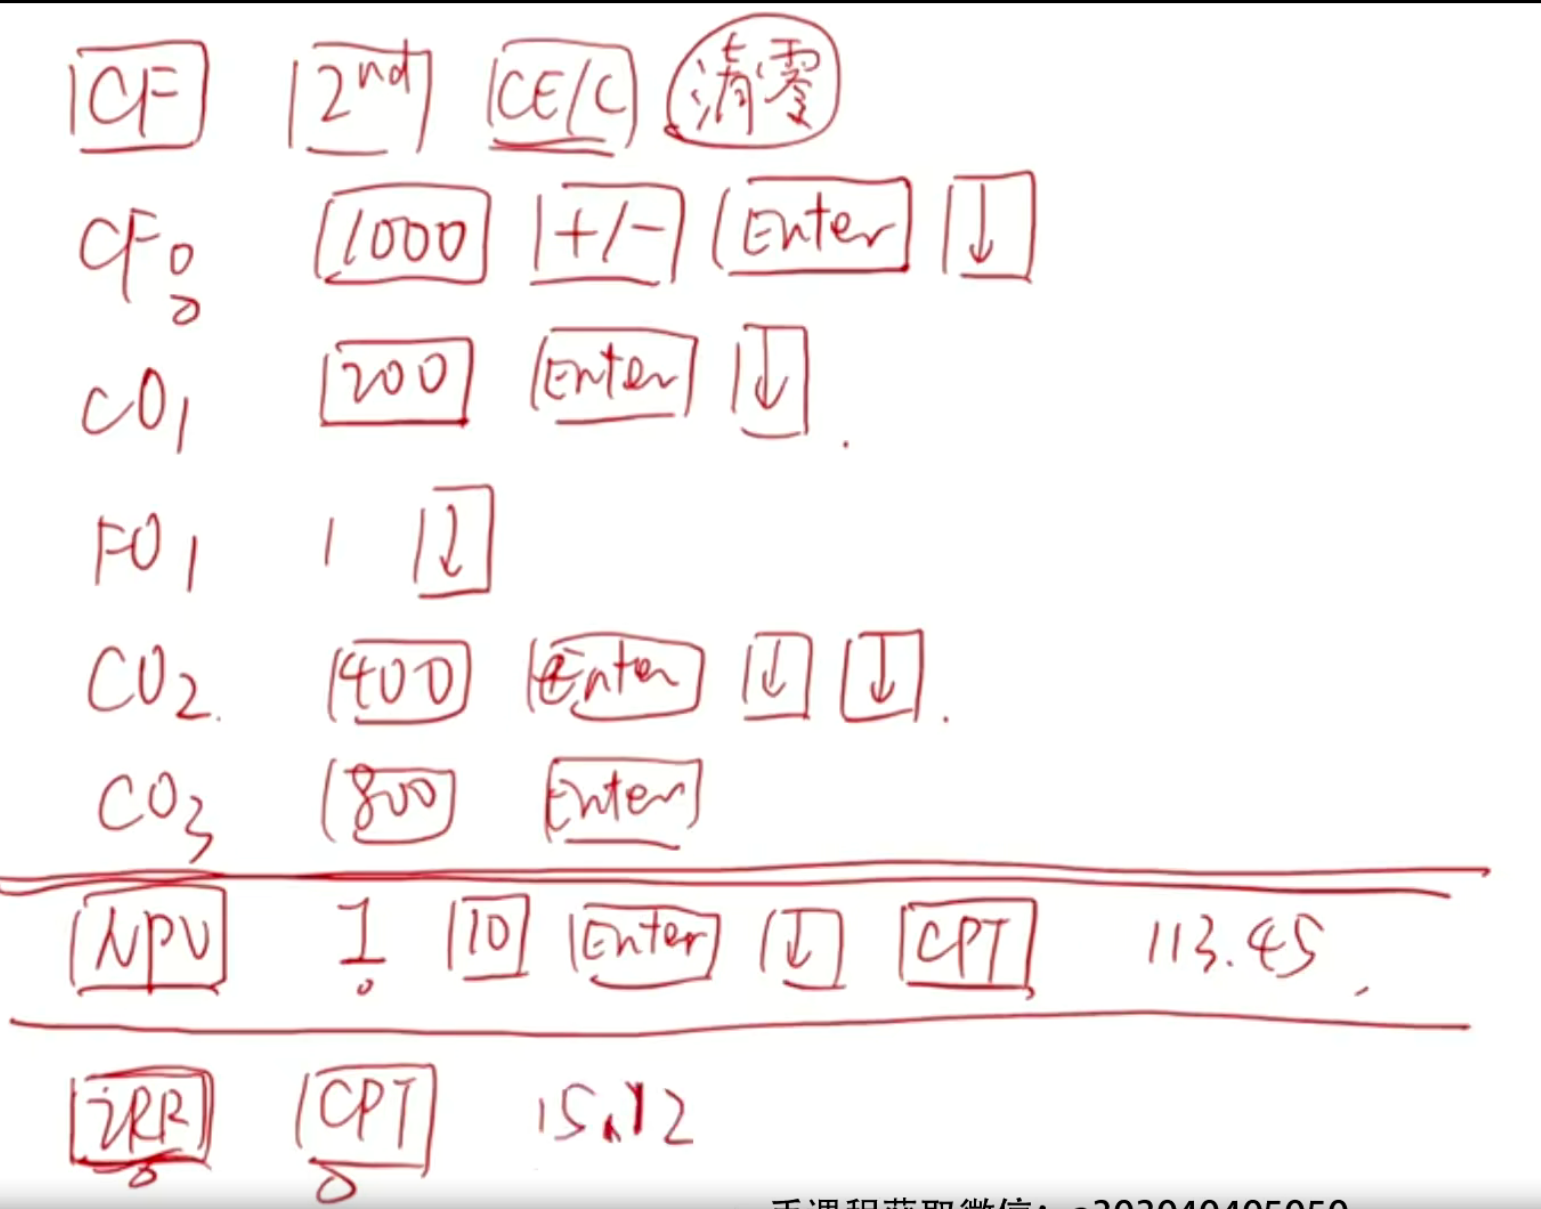 CF 2nd CE/C 清零
CF0 1000 +/- Enter ↓
C01 200 Enter ↓
F01 1 ↓
C02 400 Enter ↓ ↓
C03 800 Enter
NPV I 10 Enter ↓ CPT 113.45
IRR CPT 15.12